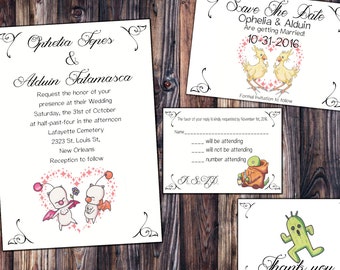 Ophelia Tepes
&
Alduin Talamasca
Request the honor of your
presence at their Wedding
Saturday, the 31st of October
at half-past-four in the afternoon
Lafayette Cemetery
2323 St. Louis St,
New Orleans
Reception to follow
Save The Date
Ophelia & Alduin
Are getting Married!
10-31-2016
Formal invitation to follow
The favor of your reply is kindly requested by November 1st, 2016
Name
will be attending
will not be attending
number attending
R.S.V.P.
Thank you